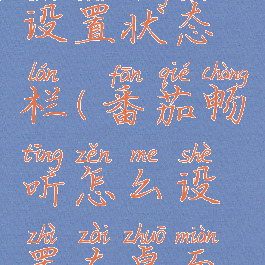 设置状态
lán fān qié chàng
栏(番茄畅
tīng zěn me shè
听怎么设
zhì zài zhuō miàn
置在桌面